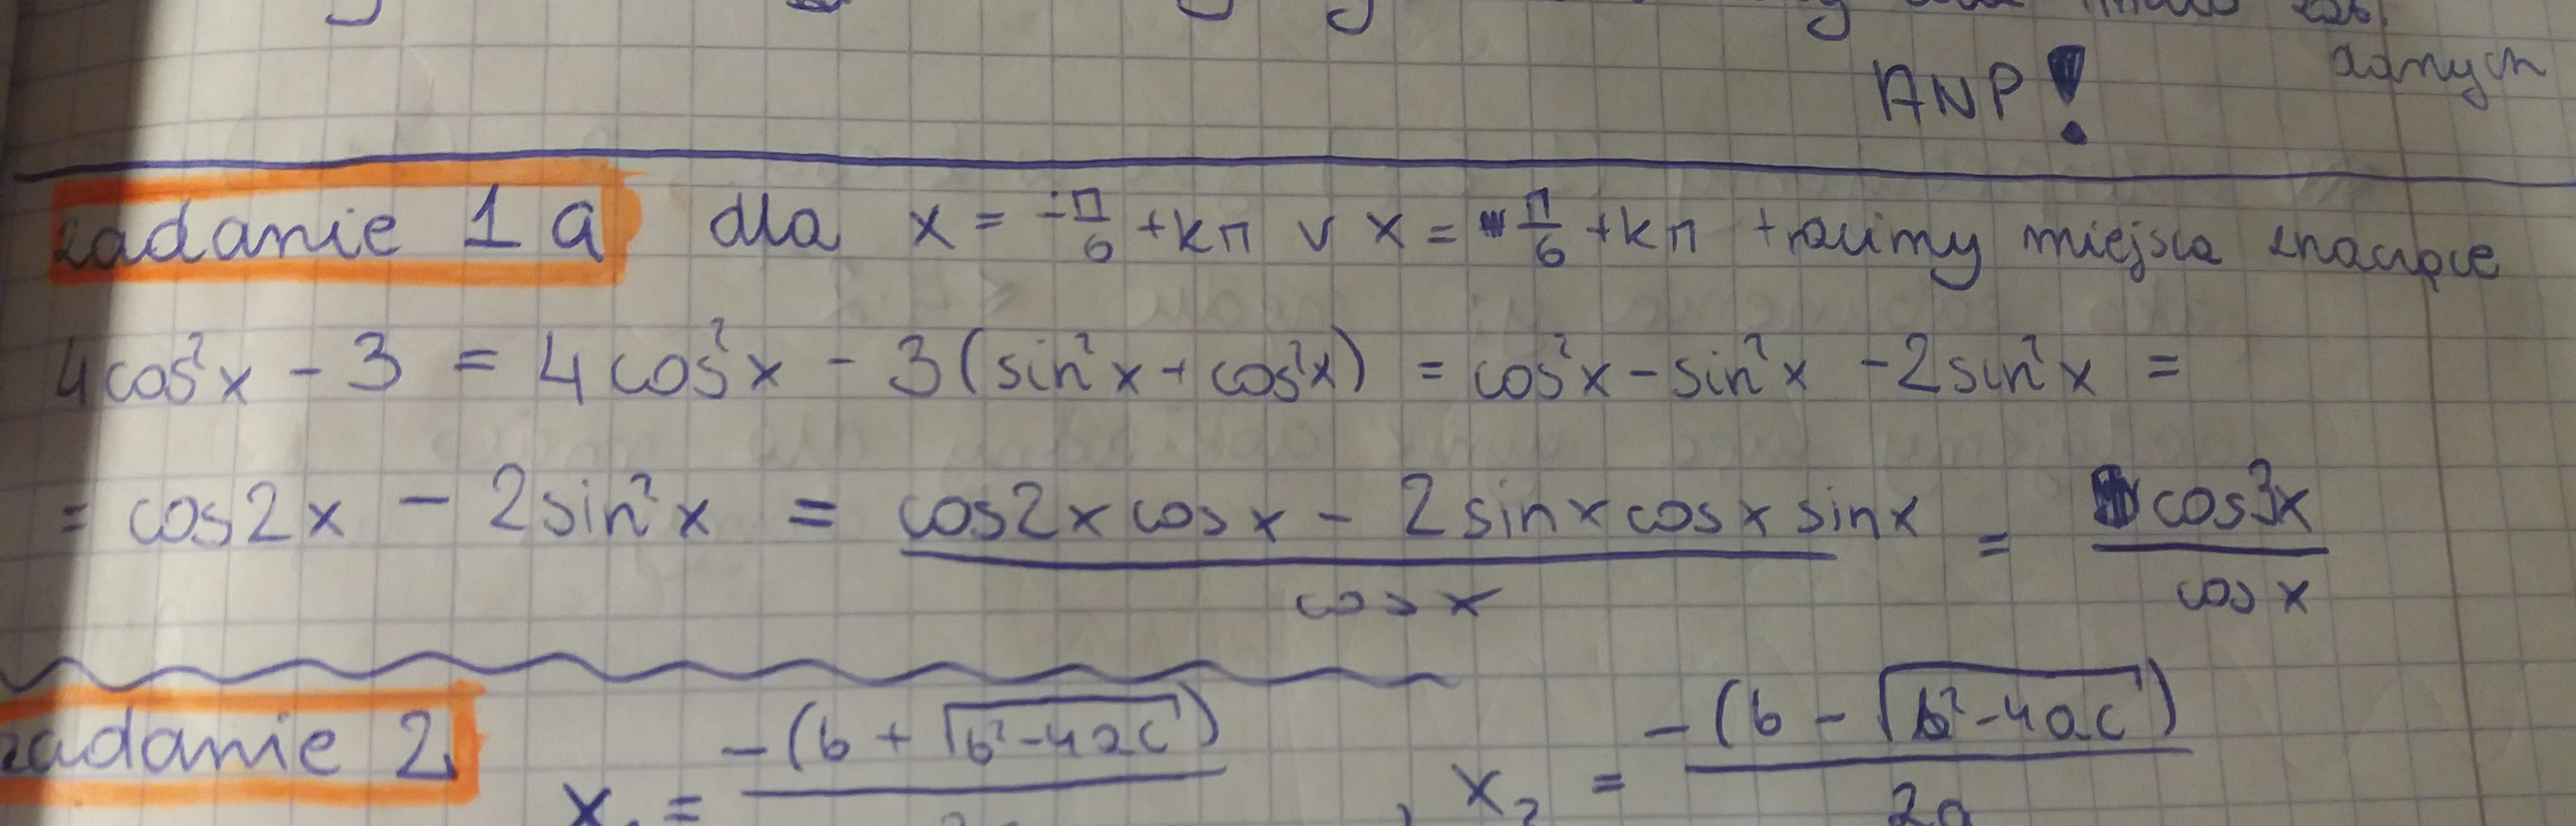 danych
ANP!
zadanie 1a dla x = -π/6 + kπ v x = π/6 + kπ tracimy miejsca znaczące
4cos²x - 3 = 4cos²x - 3(sin²x + cos²x) = cos²x - sin²x - 2sin²x =
= cos2x - 2sin²x = (cos2x cosx - 2sinx cosx sinx)/cosx = cos3x/cosx
zadanie 2 x₁ = -(b + √(b²-4ac))/ , x₂ = -(b - √(b²-4ac))/2a